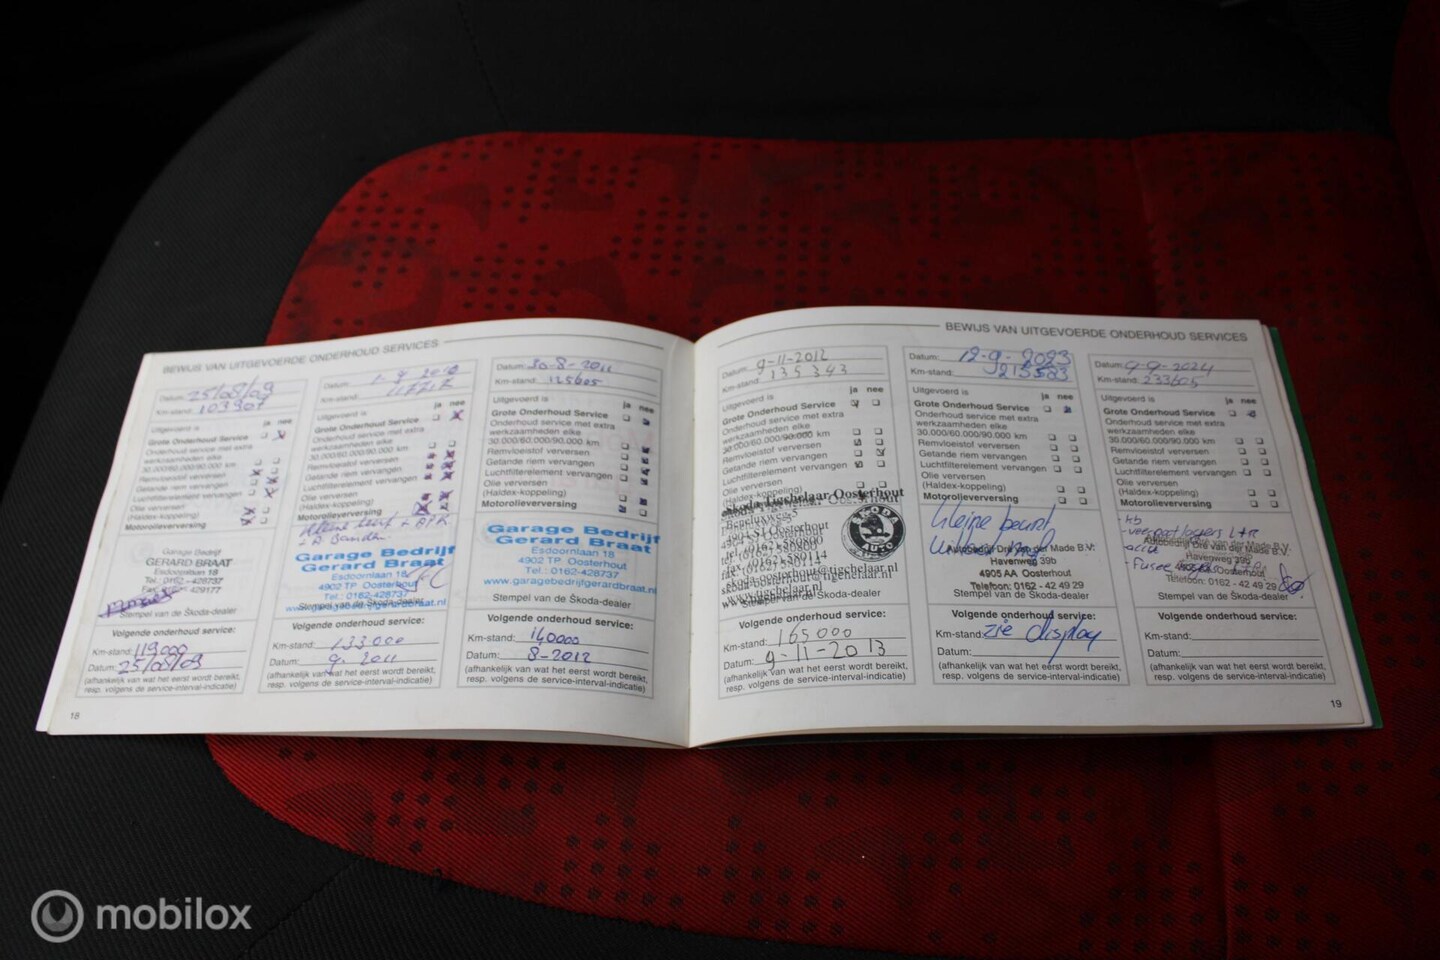 BEWIJS VAN UITGEVOERDE ONDERHOUD SERVICES
Datum: 25/08/09
Km-stand: 103907
Uitgevoerd is ja nee
Grote Onderhoud Service
Onderhoud service met extra
werkzaamheden elke
30.000/60.000/90.000 km
Remvloeistof verversen
Getande riem vervangen
Luchtfilterelement vervangen
Olie verversen
(Haldex-koppeling)
Motorolieverversing
Garage Bedrijf
GERARD BRAAT
Esdoornlaan 18
Tel.: 0162-428737
Fax: 0162-429177
Stempel van de Škoda-dealer
Volgende onderhoud service:
Km-stand: 119000
Datum: 25/08/09
(afhankelijk van wat het eerst wordt bereikt,
resp. volgens de service-interval-indicatie)
Datum:
Km-stand:
Uitgevoerd is ja nee
Grote Onderhoud Service
Onderhoud service met extra
werkzaamheden elke
30.000/60.000/90.000 km
Remvloeistof verversen
Getande riem vervangen
Luchtfilterelement vervangen
Olie verversen
(Haldex-koppeling)
Motorolieverversing
Garage Bedrijf
Gerard Braat
Esdoornlaan 18
4902 TP Oosterhout
Tel.: 0162-428737
www.garagebedrijfgerardbraat.nl
Stempel van de Škoda-dealer
Volgende onderhoud service:
Km-stand: 133.000
Datum: 9. 2011
(afhankelijk van wat het eerst wordt bereikt,
resp. volgens de service-interval-indicatie)
Datum: 30-8-2011
Km-stand: 125605
Uitgevoerd is ja nee
Grote Onderhoud Service
Onderhoud service met extra
werkzaamheden elke
30.000/60.000/90.000 km
Remvloeistof verversen
Getande riem vervangen
Luchtfilterelement vervangen
Olie verversen
(Haldex-koppeling)
Motorolieverversing
Garage Bedrijf
Gerard Braat
Esdoornlaan 18
4902 TP Oosterhout
Tel.: 0162-428737
www.garagebedrijfgerardbraat.nl
Stempel van de Škoda-dealer
Volgende onderhoud service:
Km-stand: 140000
Datum: 8-2012
(afhankelijk van wat het eerst wordt bereikt,
resp. volgens de service-interval-indicatie)
18
BEWIJS VAN UITGEVOERDE ONDERHOUD SERVICES
Datum: 9-11-2012
Km-stand: 135343
Uitgevoerd is ja nee
Grote Onderhoud Service
Onderhoud service met extra
werkzaamheden elke
30.000/60.000/90.000 km
Remvloeistof verversen
Getande riem vervangen
Luchtfilterelement vervangen
Olie verversen
(Haldex-koppeling)
Motorolieverversing
Skoda Tigchelaar Oosterhout
Beneluxweg
Oosterhout
tel. (0162) 580800
fax. (0162) 580114
skoda-oosterhout@tigchelaar.nl
www.tigchelaar.nl
SKODA
AUTO
Stempel van de Škoda-dealer
Volgende onderhoud service:
Km-stand: 165000
Datum: 9-11-2013
(afhankelijk van wat het eerst wordt bereikt,
resp. volgens de service-interval-indicatie)
Datum: 12-9-2023
Km-stand: 213583
Uitgevoerd is ja nee
Grote Onderhoud Service
Onderhoud service met extra
werkzaamheden elke
30.000/60.000/90.000 km
Remvloeistof verversen
Getande riem vervangen
Luchtfilterelement vervangen
Olie verversen
(Haldex-koppeling)
Motorolieverversing
kleine beurt
Autobedrijf Dré van der Made B.V.
Havenweg 39b
4905 AA Oosterhout
Telefoon: 0162 - 42 49 29
Stempel van de Škoda-dealer
Volgende onderhoud service:
Km-stand: zie display
Datum:
(afhankelijk van wat het eerst wordt bereikt,
resp. volgens de service-interval-indicatie)
Datum: 9-9-2024
Km-stand: 233605
Uitgevoerd is ja nee
Grote Onderhoud Service
Onderhoud service met extra
werkzaamheden elke
30.000/60.000/90.000 km
Remvloeistof verversen
Getande riem vervangen
Luchtfilterelement vervangen
Olie verversen
(Haldex-koppeling)
Motorolieverversing
- kb
- accu
Autobedrijf Dré van der Made B.V.
Havenweg 39b
Oosterhout
Telefoon: 0162 - 42 49 29
Stempel van de Škoda-dealer
Volgende onderhoud service:
Km-stand:
Datum:
(afhankelijk van wat het eerst wordt bereikt,
resp. volgens de service-interval-indicatie)
19
mobilox